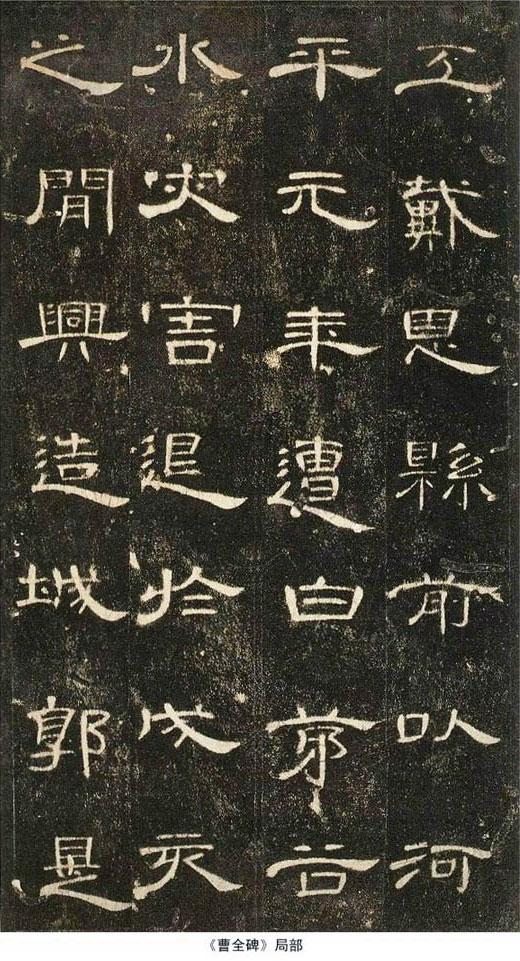 工戴恩縣前以河
平元年遭白茅谷
水灾害退於戌亥
之閒興造城郭是
《曹全碑》局部